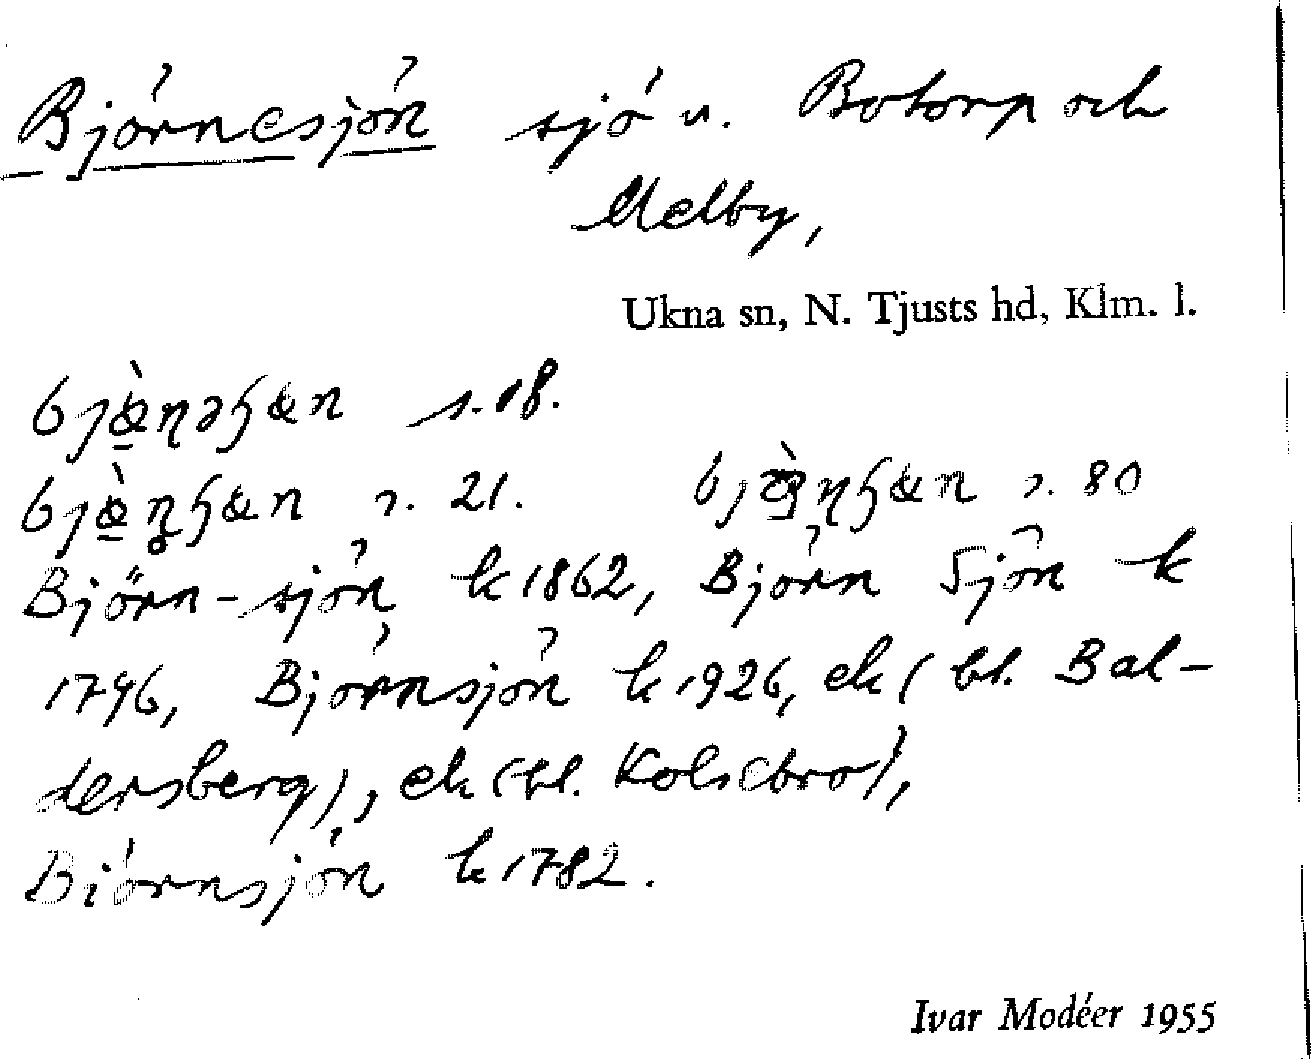 Björnesjön sjö u. Botorp och
Melby,
Ukna sn, N. Tjusts hd, Klm. l.
s. 18.
s. 21. s. 80
Björn-sjön k 1862, Björn Sjön k
1796, Björnsjön k 1926, ek (bl. Bal-
dersberg), ek (bl. Kolsebro),
Biörnsjön k 1782.
Ivar Modéer 1955